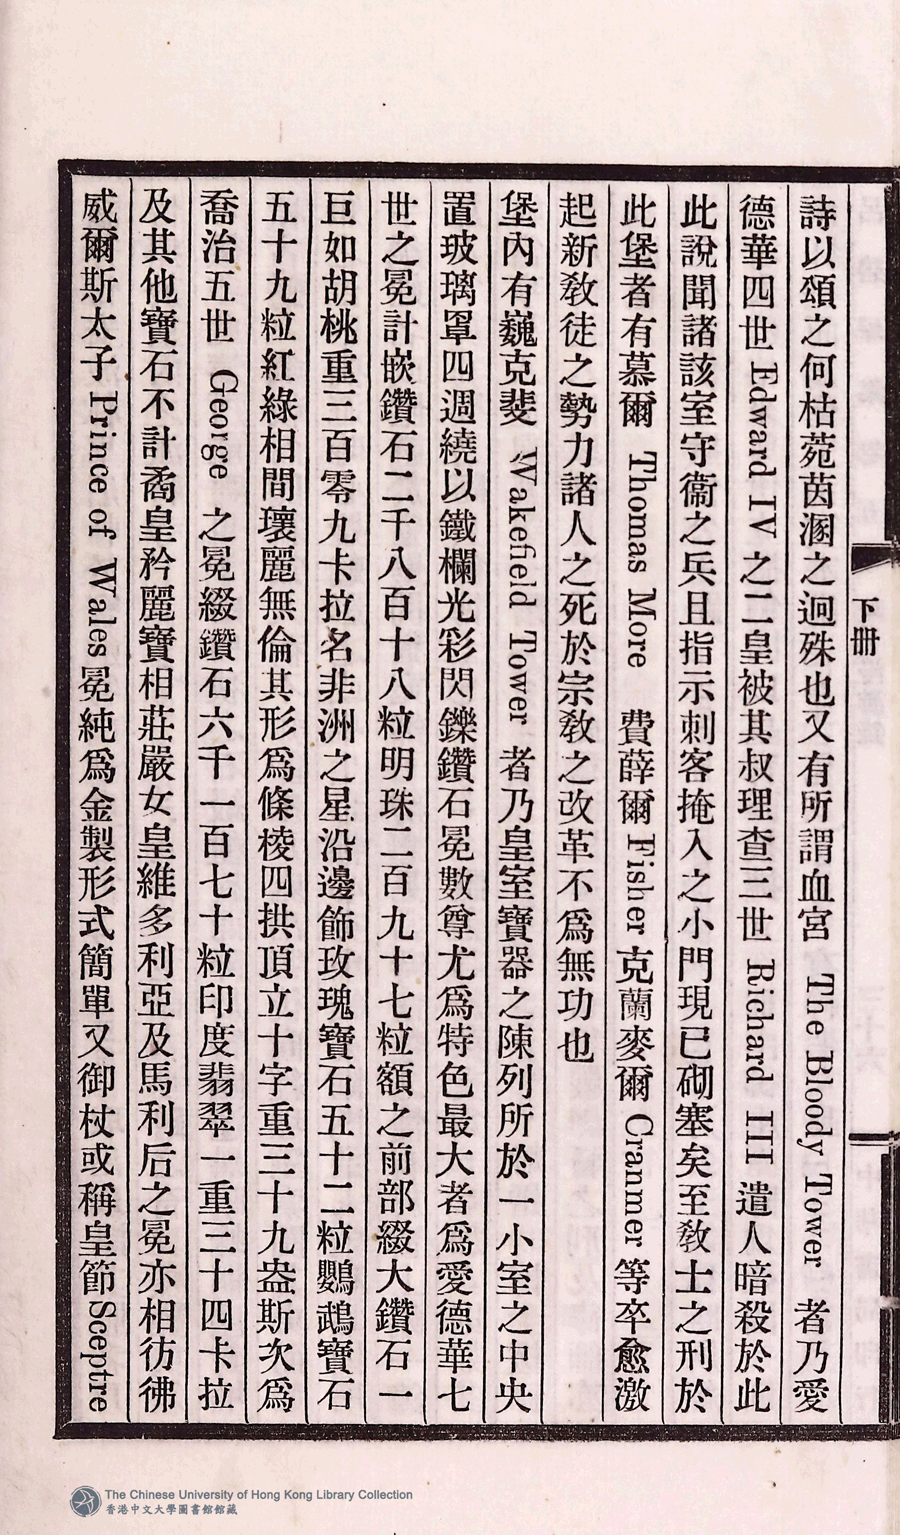 下冊
詩以頌之何枯菀茵溷之迥殊也又有所謂血宮 The Bloody Tower 者乃愛
德華四世 Edward IV 之二皇被其叔理查三世 Richard III 遣人暗殺於此
此說聞諸該室守衞之兵且指示刺客掩入之小門現已砌塞矣至敎士之刑於
此堡者有慕爾 Thomas More 費薛爾 Fisher 克蘭麥爾 Cranmer 等卒愈激
起新敎徒之勢力諸人之死於宗敎之改革不爲無功也
堡內有巍克斐 Wakefield Tower 者乃皇室寶器之陳列所於一小室之中央
置玻璃罩四週繞以鐵欄光彩閃鑠鑽石冕數尊尤爲特色最大者爲愛德華七
世之冕計嵌鑽石二千八百十八粒明珠二百九十七粒額之前部綴大鑽石一
巨如胡桃重三百零九卡拉名非洲之星沿邊飾玫瑰寶石五十二粒鸚鵡寶石
五十九粒紅綠相間瓌麗無倫其形爲條棱四拱頂立十字重三十九盎斯次爲
喬治五世 George 之冕綴鑽石六千一百七十粒印度翡翠一重三十四卡拉
及其他寶石不計矞皇矜麗寶相莊嚴女皇維多利亞及馬利后之冕亦相彷彿
威爾斯太子 Prince of Wales 冕純爲金製形式簡單又御杖或稱皇節 Sceptre
The Chinese University of Hong Kong Library Collection
香港中文大學圖書館館藏